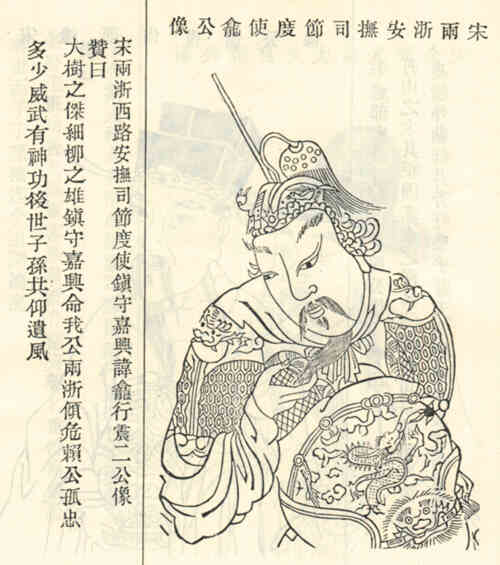 宋兩浙安撫司節度使龕公像
宋兩浙西路安撫司節度使鎮守嘉興諱龕行震二公像
贊曰
大樹之傑細柳之雄鎮守嘉興命我公兩浙傾危賴公孤忠
多少威武有神功後世子孫共仰遺風